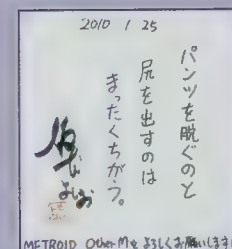 2010 1 25
パンツを脱ぐのと
尻を出すのは
まったくちがう。
METROID Other Mをよろしくお願いします